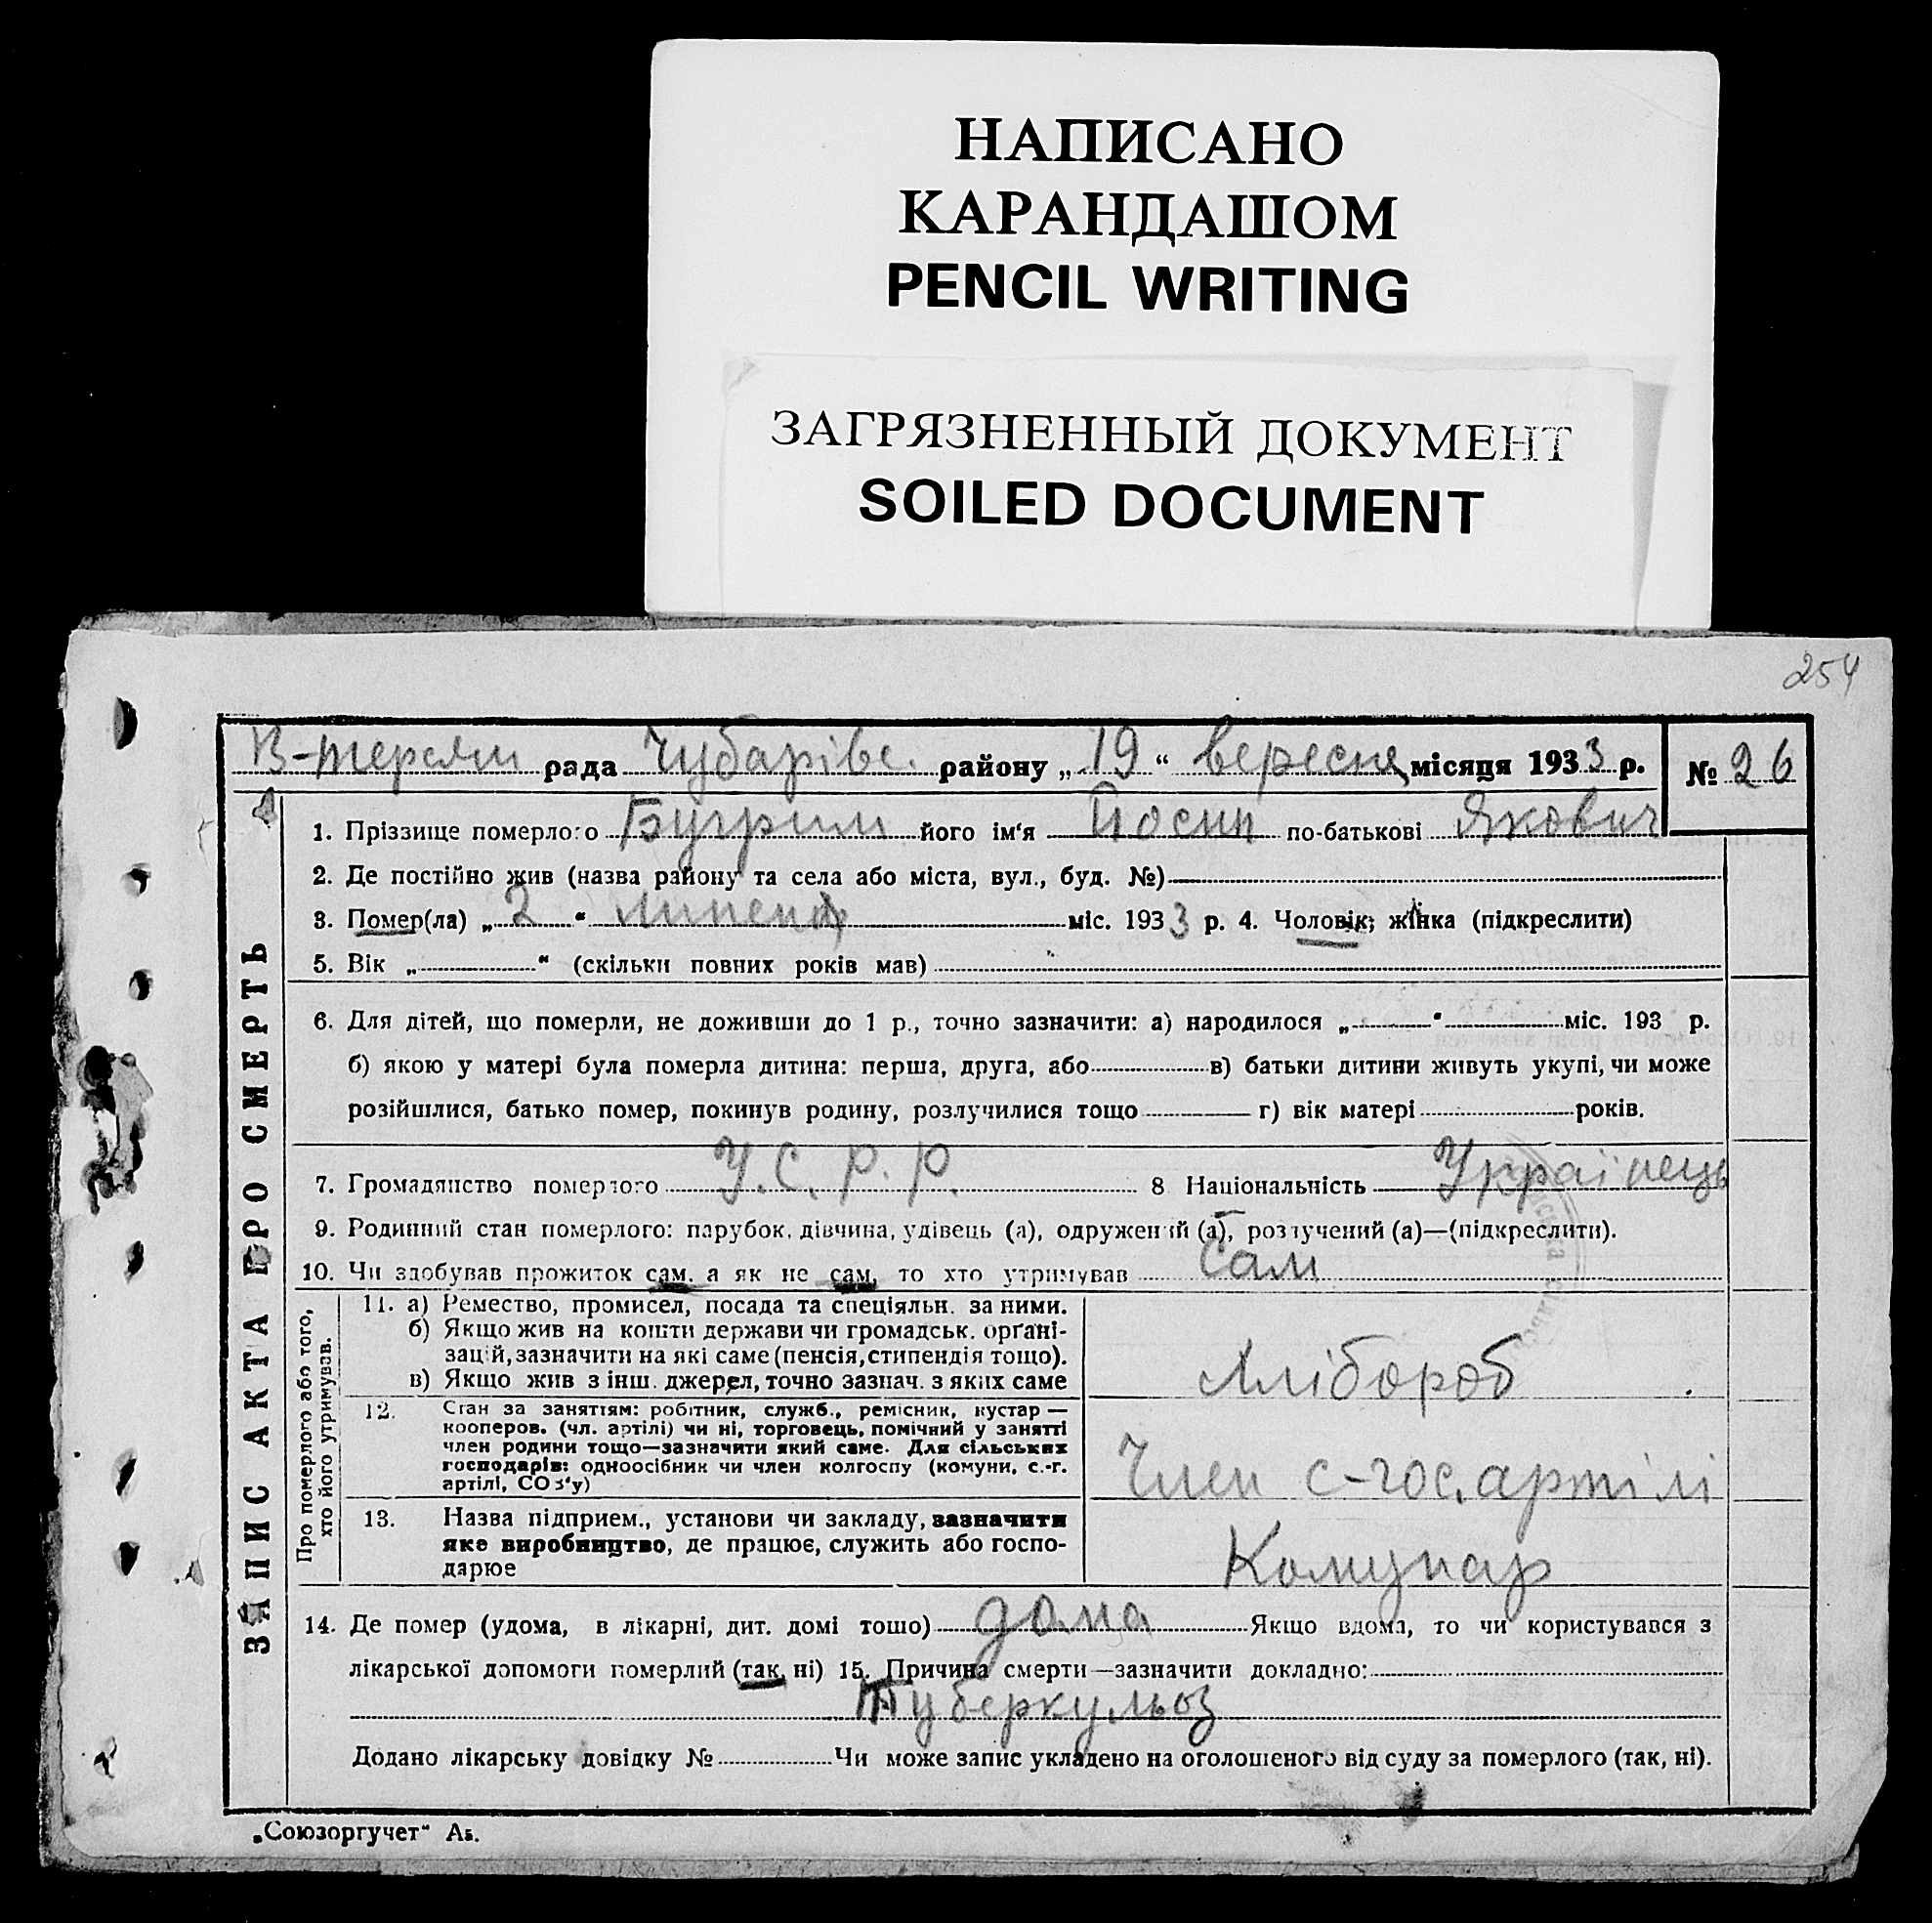 НАПИСАНО
КАРАНДАШОМ
PENCIL WRITING
ЗАГРЯЗНЕННЫЙ ДОКУМЕНТ
SOILED DOCUMENT
254
В-терсян рада Чубарівс. району „19“ вересня місяця 1933 р. № 26
ЗАПИС АКТА ПРО СМЕРТЬ
1. Пріззище померлого Бугрим його ім‘я Йосип по-батькові Якович
2. Де постійно жив (назва району та села або міста, вул., буд. №)
3. Помер(ла) „2“ липня міс. 1933 р. 4. Чоловік; жінка (підкреслити)
5. Вік „ “ (скільки повних років мав)
6. Для дітей, що померли, не доживши до 1 р., точно зазначити: а) народилося „ “ міс. 193 р.
б) якою у матері була померла дитина: перша, друга, або в) батьки дитини живуть укупі, чи може
розійшлися, батько помер, покинув родину, розлучилися тощо г) вік матері років.
7. Громадянство померлого У.С.Р.Р. 8 Національність Українець
9. Родинний стан померлого: парубок, дівчина, удівець (а), одружений (а), розлучений (а)—(підкреслити).
10. Чи здобував прожиток сам, а як не сам, то хто утримував Сам
Про померлого або того,
хто його утримував.
11. а) Ремество, промисел, посада та спеціяльн. за ними.
б) Якщо жив на кошти держави чи громадськ. орґані-
зацій, зазначити на які саме (пенсія, стипендія тощо).
в) Якщо жив з інш. джерел, точно зазнач. з яких саме
Хлібороб
12. Стан за заняттям: робітник, служб., ремісник, кустар —
кооперов. (чл. артілі) чи ні, торговець, помічний у занятті
член родини тощо—зазначити який саме. Для сільських
господарів: одноосібник чи член колгоспу (комуни, с.-г.
артілі, СОЗ‘у)
Член с-гос. артілі
13. Назва підприєм., установи чи закладу, зазначити
яке виробництво, де працює, служить або госпо-
дарює
Комунар
14. Де помер (удома, в лікарні, дит. домі тощо) дома Якщо вдома, то чи користувався з
лікарської допомоги померлий (так, ні) 15. Причина смерти—зазначити докладно:
Туберкульоз
Додано лікарську довідку № Чи може запис укладено на оголошеного від суду за померлого (так, ні).
„Союзоргучет“